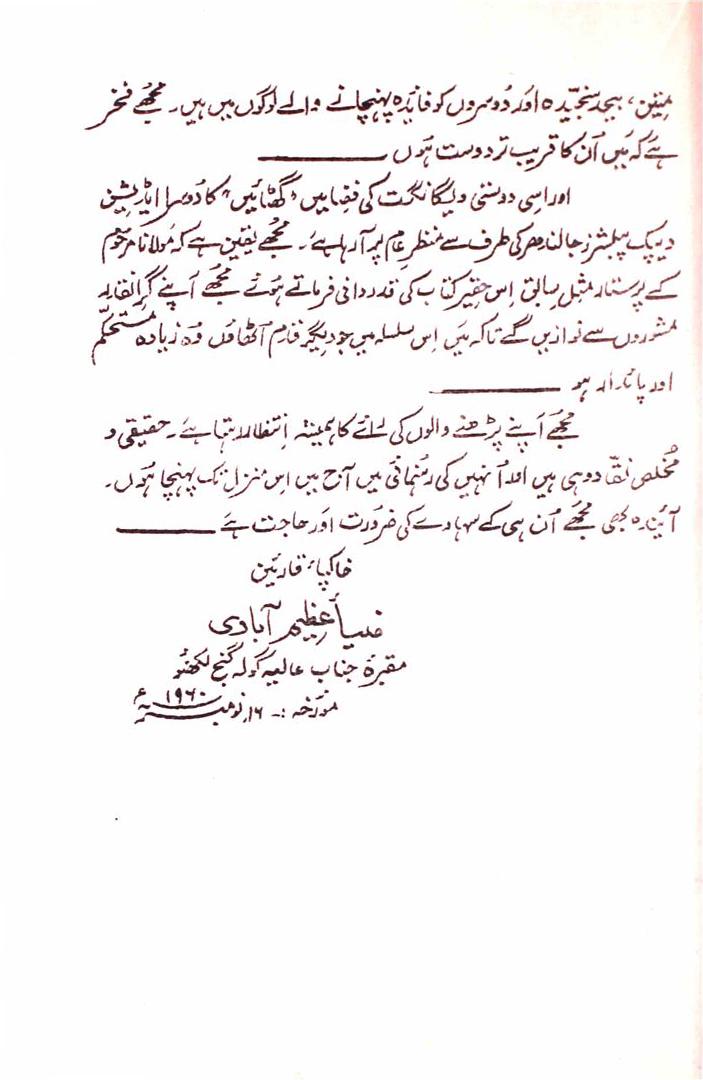 متین، بیحد سنجیدہ اور دُوسروں کو فائدہ پہنچانے والے لوگوں میں ہیں۔ مجھے فخر
ہے کہ مَیں اُن کا قریب تر دوست ہوں ————
اور اسی دوستی و یگانگت کی فضا میں "گھٹائیں" کا دُوسرا ایڈیشن
دیپک پبلشرز جالندھر کی طرف سے منظرِ عام پر آ رہا ہے۔ مجھے یقین ہے کہ مولانا مرحوم
کے پرستار مثلِ سابق اِس حقیر کتاب کی قدردانی فرماتے ہوئے مجھے اَپنے گرانقدر
مشوروں سے نوازیں گے تاکہ مَیں اِس سلسلہ میں جو دیگر قدم اُٹھاؤں وُہ زیادہ مستحکم
اور پائدار ہو ————
مُجھے اَپنے پڑھنے والوں کی رائے کا ہمیشہ اِنتظار رہتا ہے۔ حقیقی و
مُخلص نقّاد وہی ہیں اور اُنہیں کی رہنمائی میں آج میں اس منزل تک پہنچا ہُوں۔
آئیندہ بھی مُجھے اُن ہی کے سہارے کی ضرورت اور حاجت ہے ————
خاکپائے قارئین
ضیاؔ عظیم آبادی
مقبرۂ جناب عالیہ گولہ گنج لکھنؤ
مورّخہ :۔ ۱۶؍ نومبر ۱۹۶۰ء